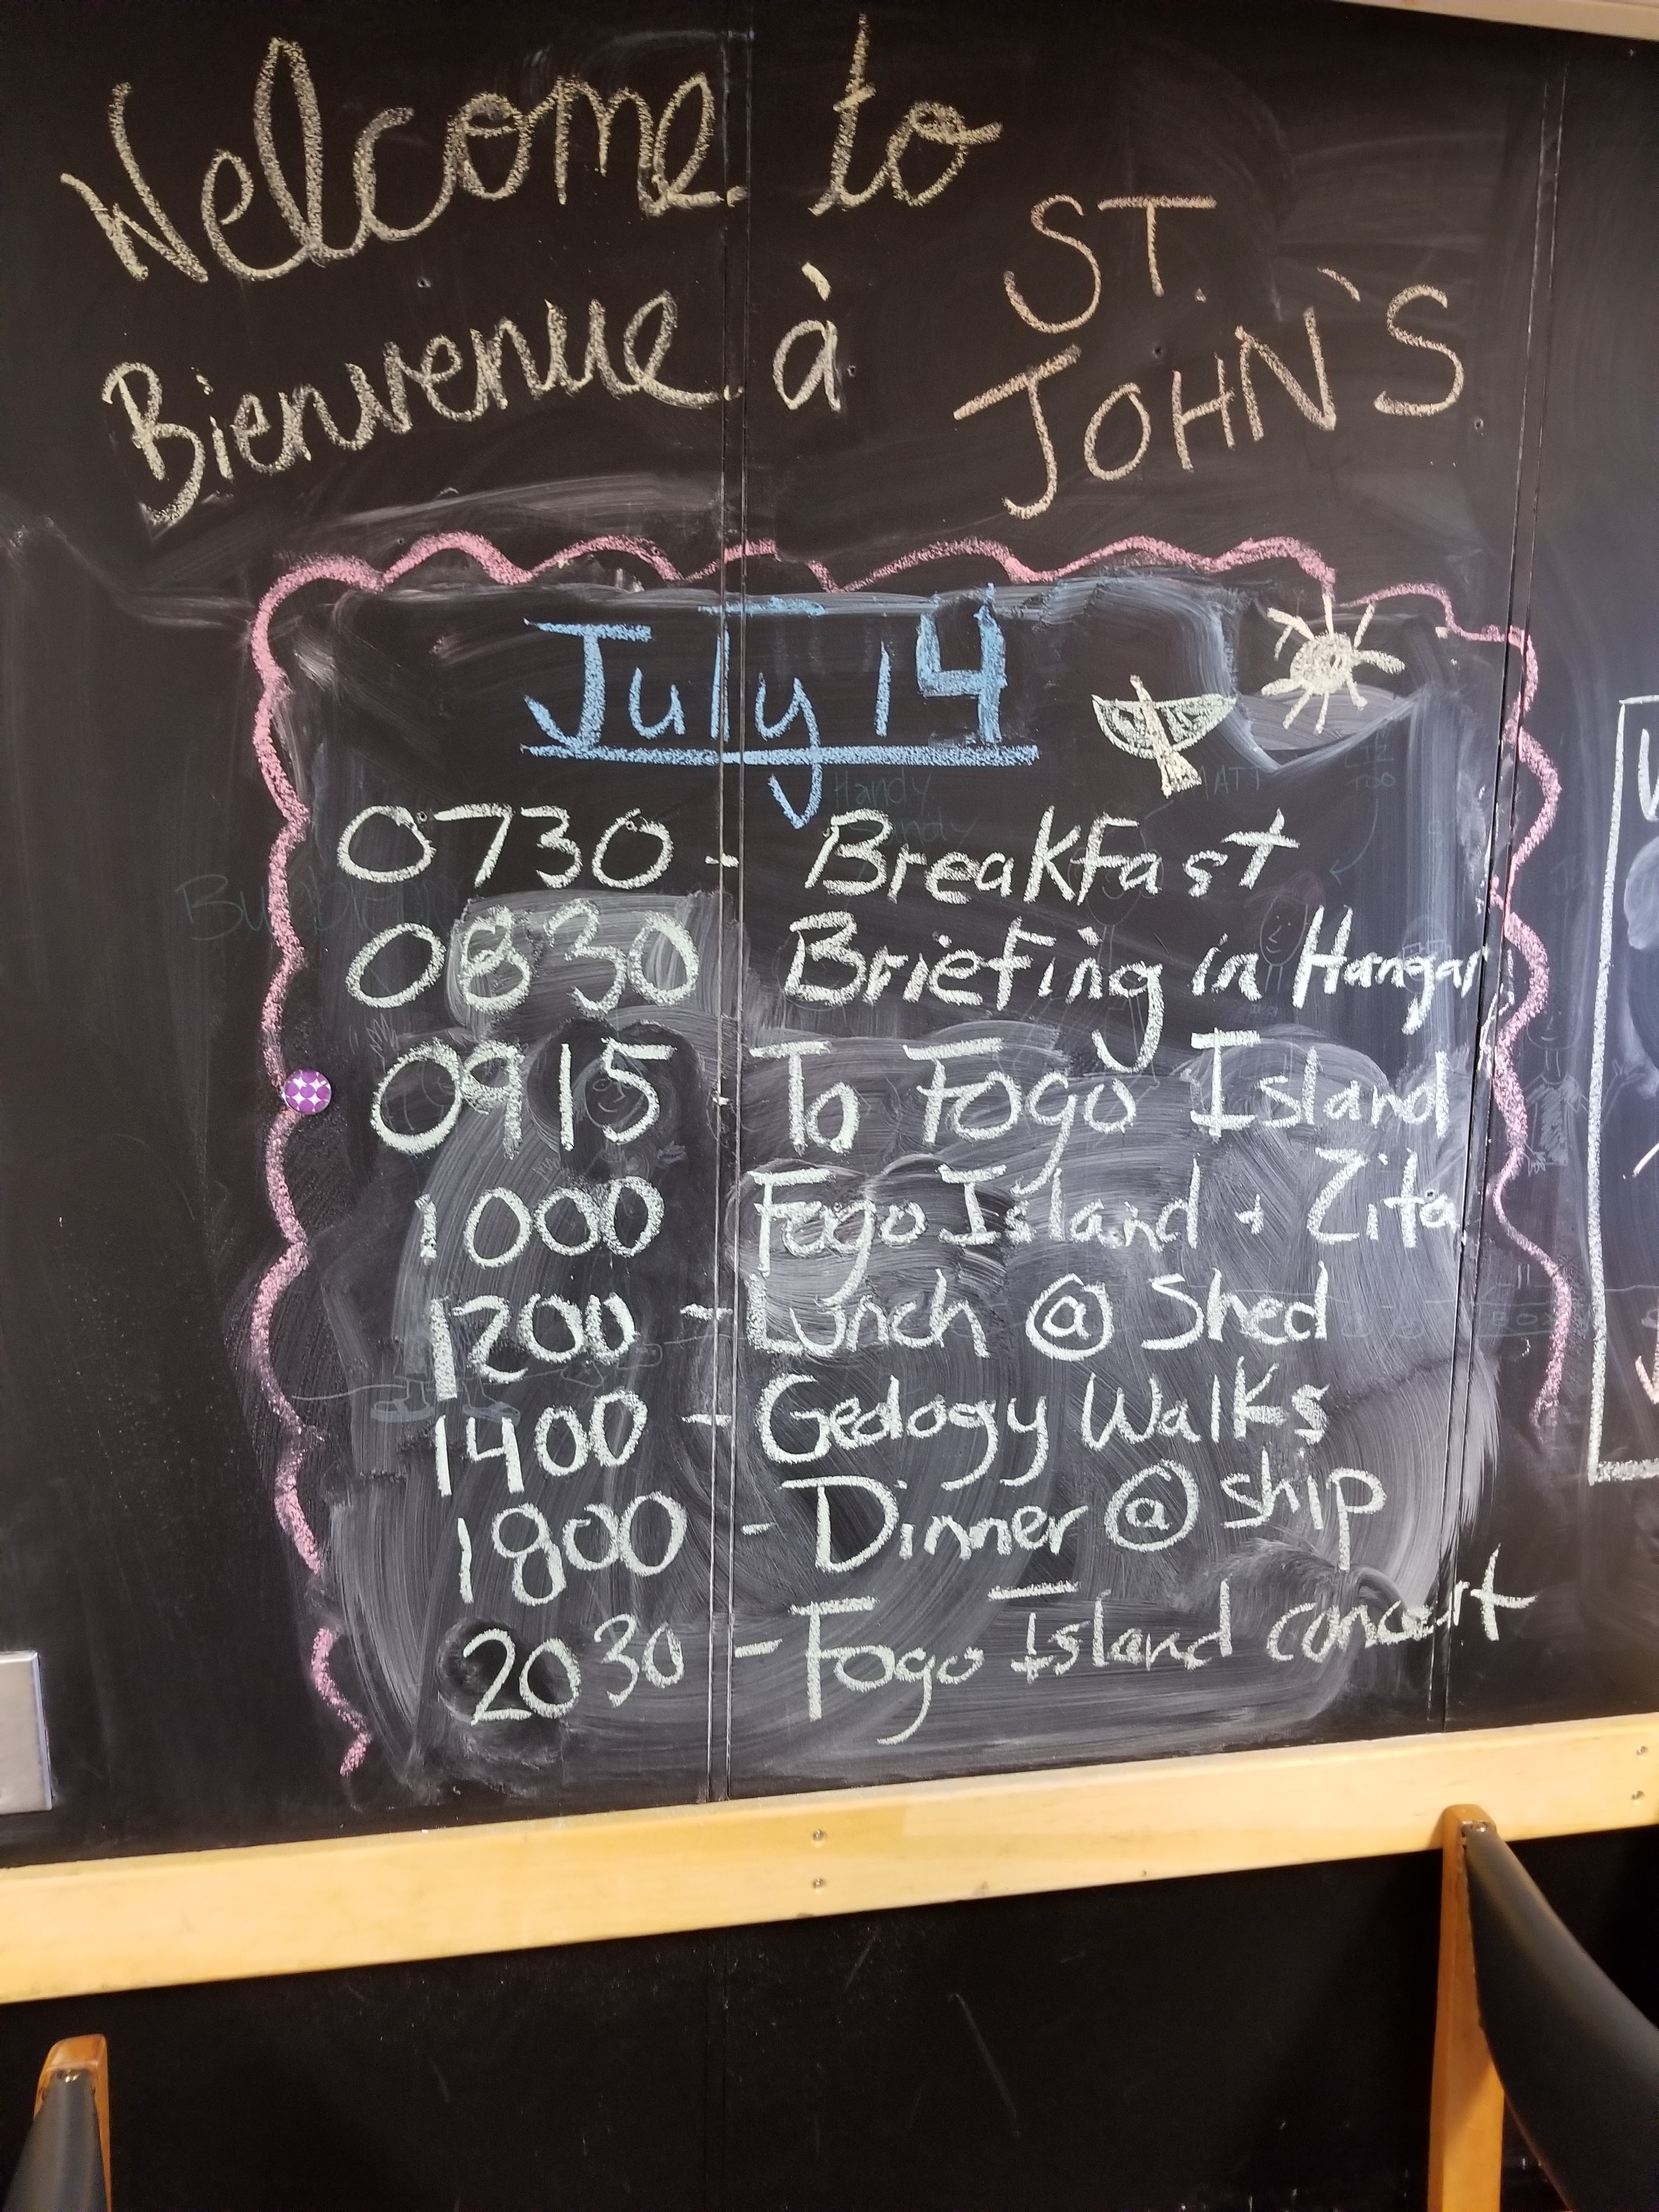 Welcome to
Bienvenue à
ST.
JOHN'S
July 14
0730 - Breakfast
0830 Briefing in Hangar
0915 To Fogo Island
1000 Fogo Island + Zita
1200 - Lunch @ Shed
1400 - Geology Walks
1800 - Dinner @ ship
2030 - Fogo Island concert
Handy
MATT
LIZ
TOO